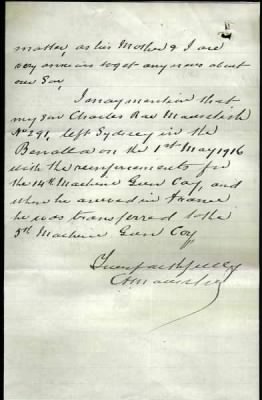 matter, as his Mother & I are
very anxious to get any news about
our Son,
I may mention that
my son Charles Rae
No 291, left Sydney in the
Benalla on the 1st May 1916
with the reinforcements for
the 14th Machine Gun Coy, and
when he arrived in France
he was transferred to the
5th Machine Gun Coy
Yours faithfully